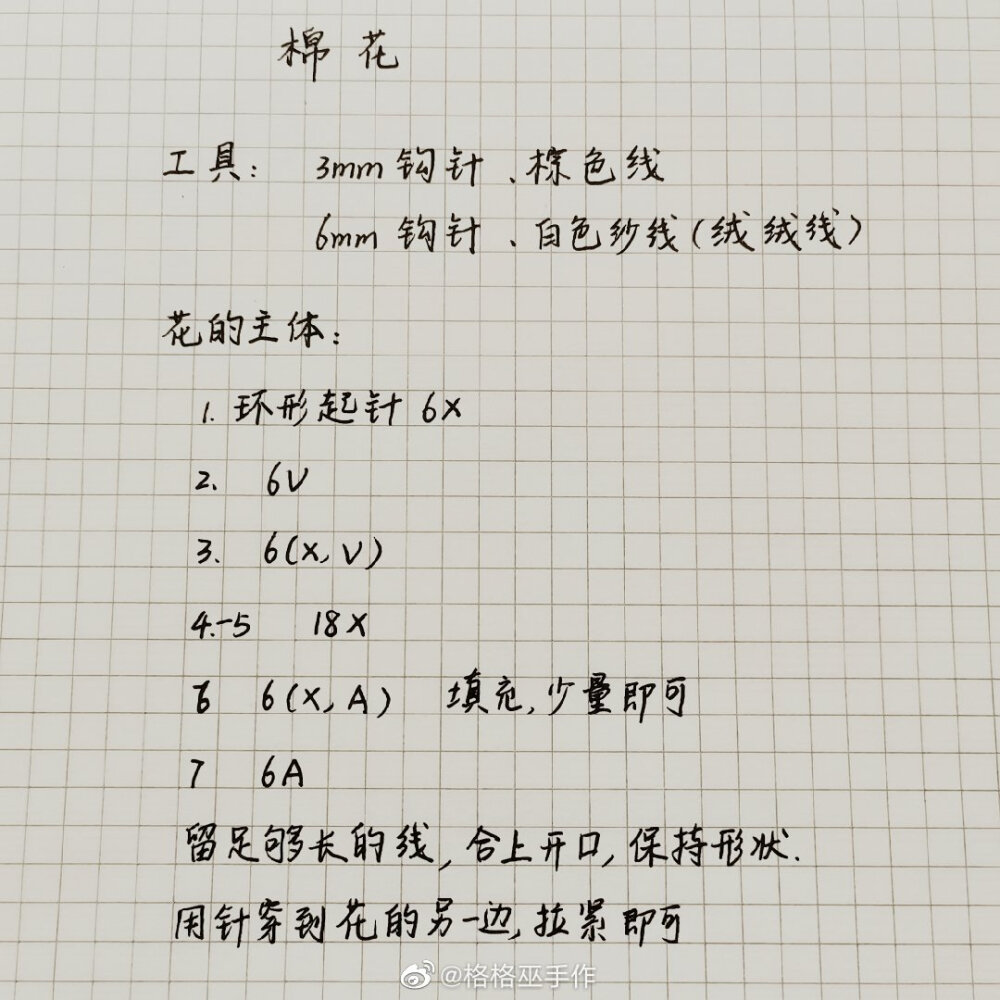 棉花
工具: 3mm 钩针、棕色线
6mm 钩针、白色纱线(绒绒线)
花的主体:
1. 环形起针 6X
2. 6V
3. 6(X, V)
4.-5 18X
6 6(X, A) 填充,少量即可
7 6A
留足够长的线,合上开口,保持形状.
用针穿到花的另一边,拉紧即可
@格格巫手作